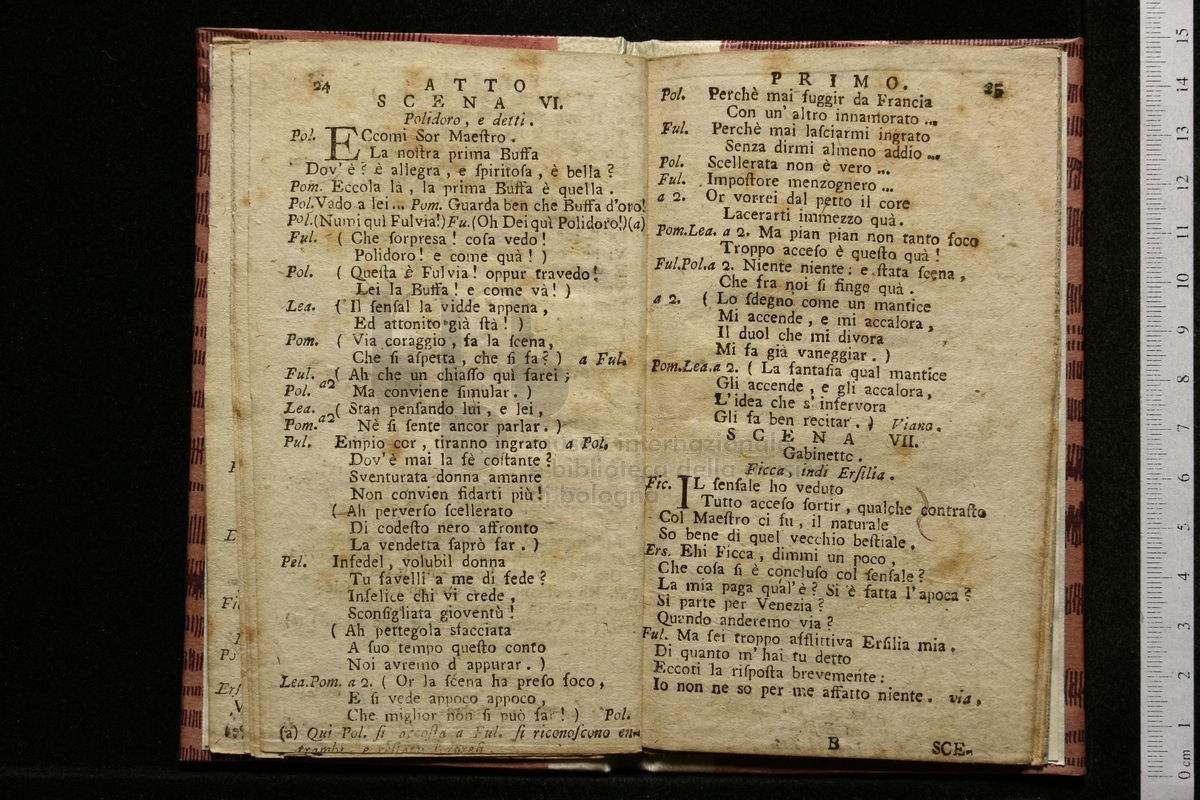 24 ATTO
SCENA VI.
Polidoro, e detti.
Pol. ECcomi Sor Maeſtro.
La noſtra prima Buffa
Dov'è? è allegra, e ſpiritoſa, è bella?
Pom. Eccola là, la prima Buffa è quella.
Pol. Vado a lei... Pom. Guarda ben che Buffa d'oro!
Pol. (Numi quì Fulvia!) Fu. (Oh Dei quì Polidoro!) (a)
Ful. ( Che ſorpreſa! coſa vedo!
Polidoro! e come quà! )
Pol. ( Queſta è Fulvia! oppur travedo!
Lei la Buffa! e come và! )
Lea. ( Il ſenſal la vidde appena,
Ed attonito già ſtà! )
Pom. ( Via coraggio, fa la ſcena,
Che ſi aſpetta, che ſi fa? ) a Ful.
Ful. ( Ah che un chiaſſo quì farei;
Pol. a2 Ma conviene ſimular. )
Lea. ( Stan penſando lui, e lei,
Pom. a2 Nè ſi ſente ancor parlar. )
Pul. Empio cor, tiranno ingrato a Pol.
Dov'è mai la fè coſtante?
Sventurata donna amante
Non convien fidarti più!
( Ah perverſo ſcellerato
Di codeſto nero affronto
La vendetta ſaprò far. )
Pel. Infedel, volubil donna
Tu favelli a me di fede?
Infelice chi vi crede,
Sconſigliata gioventù!
( Ah pettegola sfacciata
A ſuo tempo queſto conto
Noi avremo d'appurar. )
Lea.Pom. a 2. ( Or la ſcena ha preſo foco,
E ſi vede appoco appoco,
Che miglior non ſi può far! ) Pol.
(a) Qui Pol. ſi accoſta a Ful. ſi riconoſcono en-
trambi, e reſtano
PRIMO. 25
Pol. Perchè mai fuggir da Francia
Con un' altro innamorato ...
Ful. Perchè mai laſciarmi ingrato
Senza dirmi almeno addio ...
Pol. Scellerata non è vero ...
Ful. Impoſtore menzognero ...
a 2. Or vorrei dal petto il core
Lacerarti immezzo quà.
Pom.Lea. a 2. Ma pian pian non tanto foco
Troppo acceſo è queſto quà!
Ful.Pol.a 2. Niente niente: e ſtata ſcena,
Che fra noi ſi finge quà.
a 2. ( Lo ſdegno come un mantice
Mi accende, e mi accalora,
Il duol che mi divora
Mi fa già vaneggiar. )
Pom.Lea.a 2. ( La fantaſia qual mantice
Gli accende, e gli accalora,
L'idea che s'infervora
Gli fa ben recitar. ) Viano.
SCENA VII.
Gabinette.
Ficca, indi Erſilia.
Fic. IL ſenſale ho veduto
Tutto acceſo ſortir, qualche contraſto
Col Maeſtro ci fu, il naturale
So bene di quel vecchio beſtiale.
Ers. Ehi Ficca, dimmi un poco,
Che coſa ſi è concluſo col ſenſale?
La mia paga qual'è? Si è fatta l'apoca?
Si parte per Venezia?
Quando anderemo via?
Ful. Ma ſei troppo afflittiva Erſilia mia.
Di quanto m'hai tu detto
Eccoti la riſpoſta brevemente:
Io non ne so per me affatto niente. via,
B SCE-